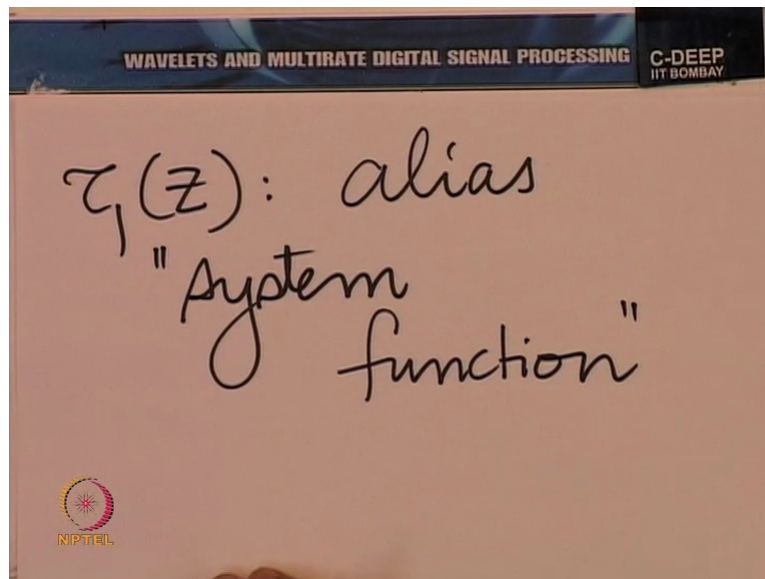 WAVELETS AND MULTIRATE DIGITAL SIGNAL PROCESSING
C-DEEP
IIT BOMBAY
τ₁(Z): alias
"system
function"
NPTEL